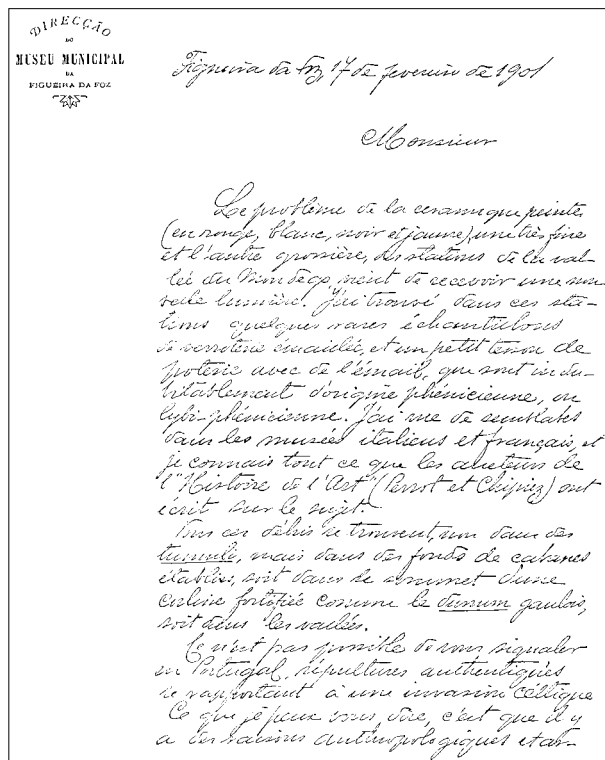 DIRECÇÃO
DO
MUSEU MUNICIPAL
DA
FIGUEIRA DA FOZ
Figueira da Foz, 17 de fevereiro de 1901
Monsieur
Le problème de la ceramique peinte
(en rouge, blanc, noir et jaune), une très fine
et l'autre grossière, des stations de la val-
lée du Mondego, vient de recevoir une nou-
velle lumière. J'ai trouvé dans ces sta-
tions quelques rares échantillons
de verroterie émaillée, et un petit tesson de
poterie avec de l'émail, que sont indu-
bitablement d'origine phénicienne, ou
lybi-phénicienne. J'ai vue de semblables
dans les musées italiens et français, et
je connais tout ce que les aucteurs de
l'"Histoire de l'Art" (Perrot et Chipiez) ont
écrit sur le sujet.
Tous ces débris se trouvent, non dans des
tumuli, mais dans des fonds de cabanes
établies, soit dans le sommet d'une
colline fortifiée comme le dunum gaulois,
soit dans les vallées.
Ce n'est pas possible de vous signaler
en Portugal, sépultures authentiques
se rapportant à une invasion céltique
Ce que je peux vous dire, c'est que il y
a des raisons anthropologiques et ar-